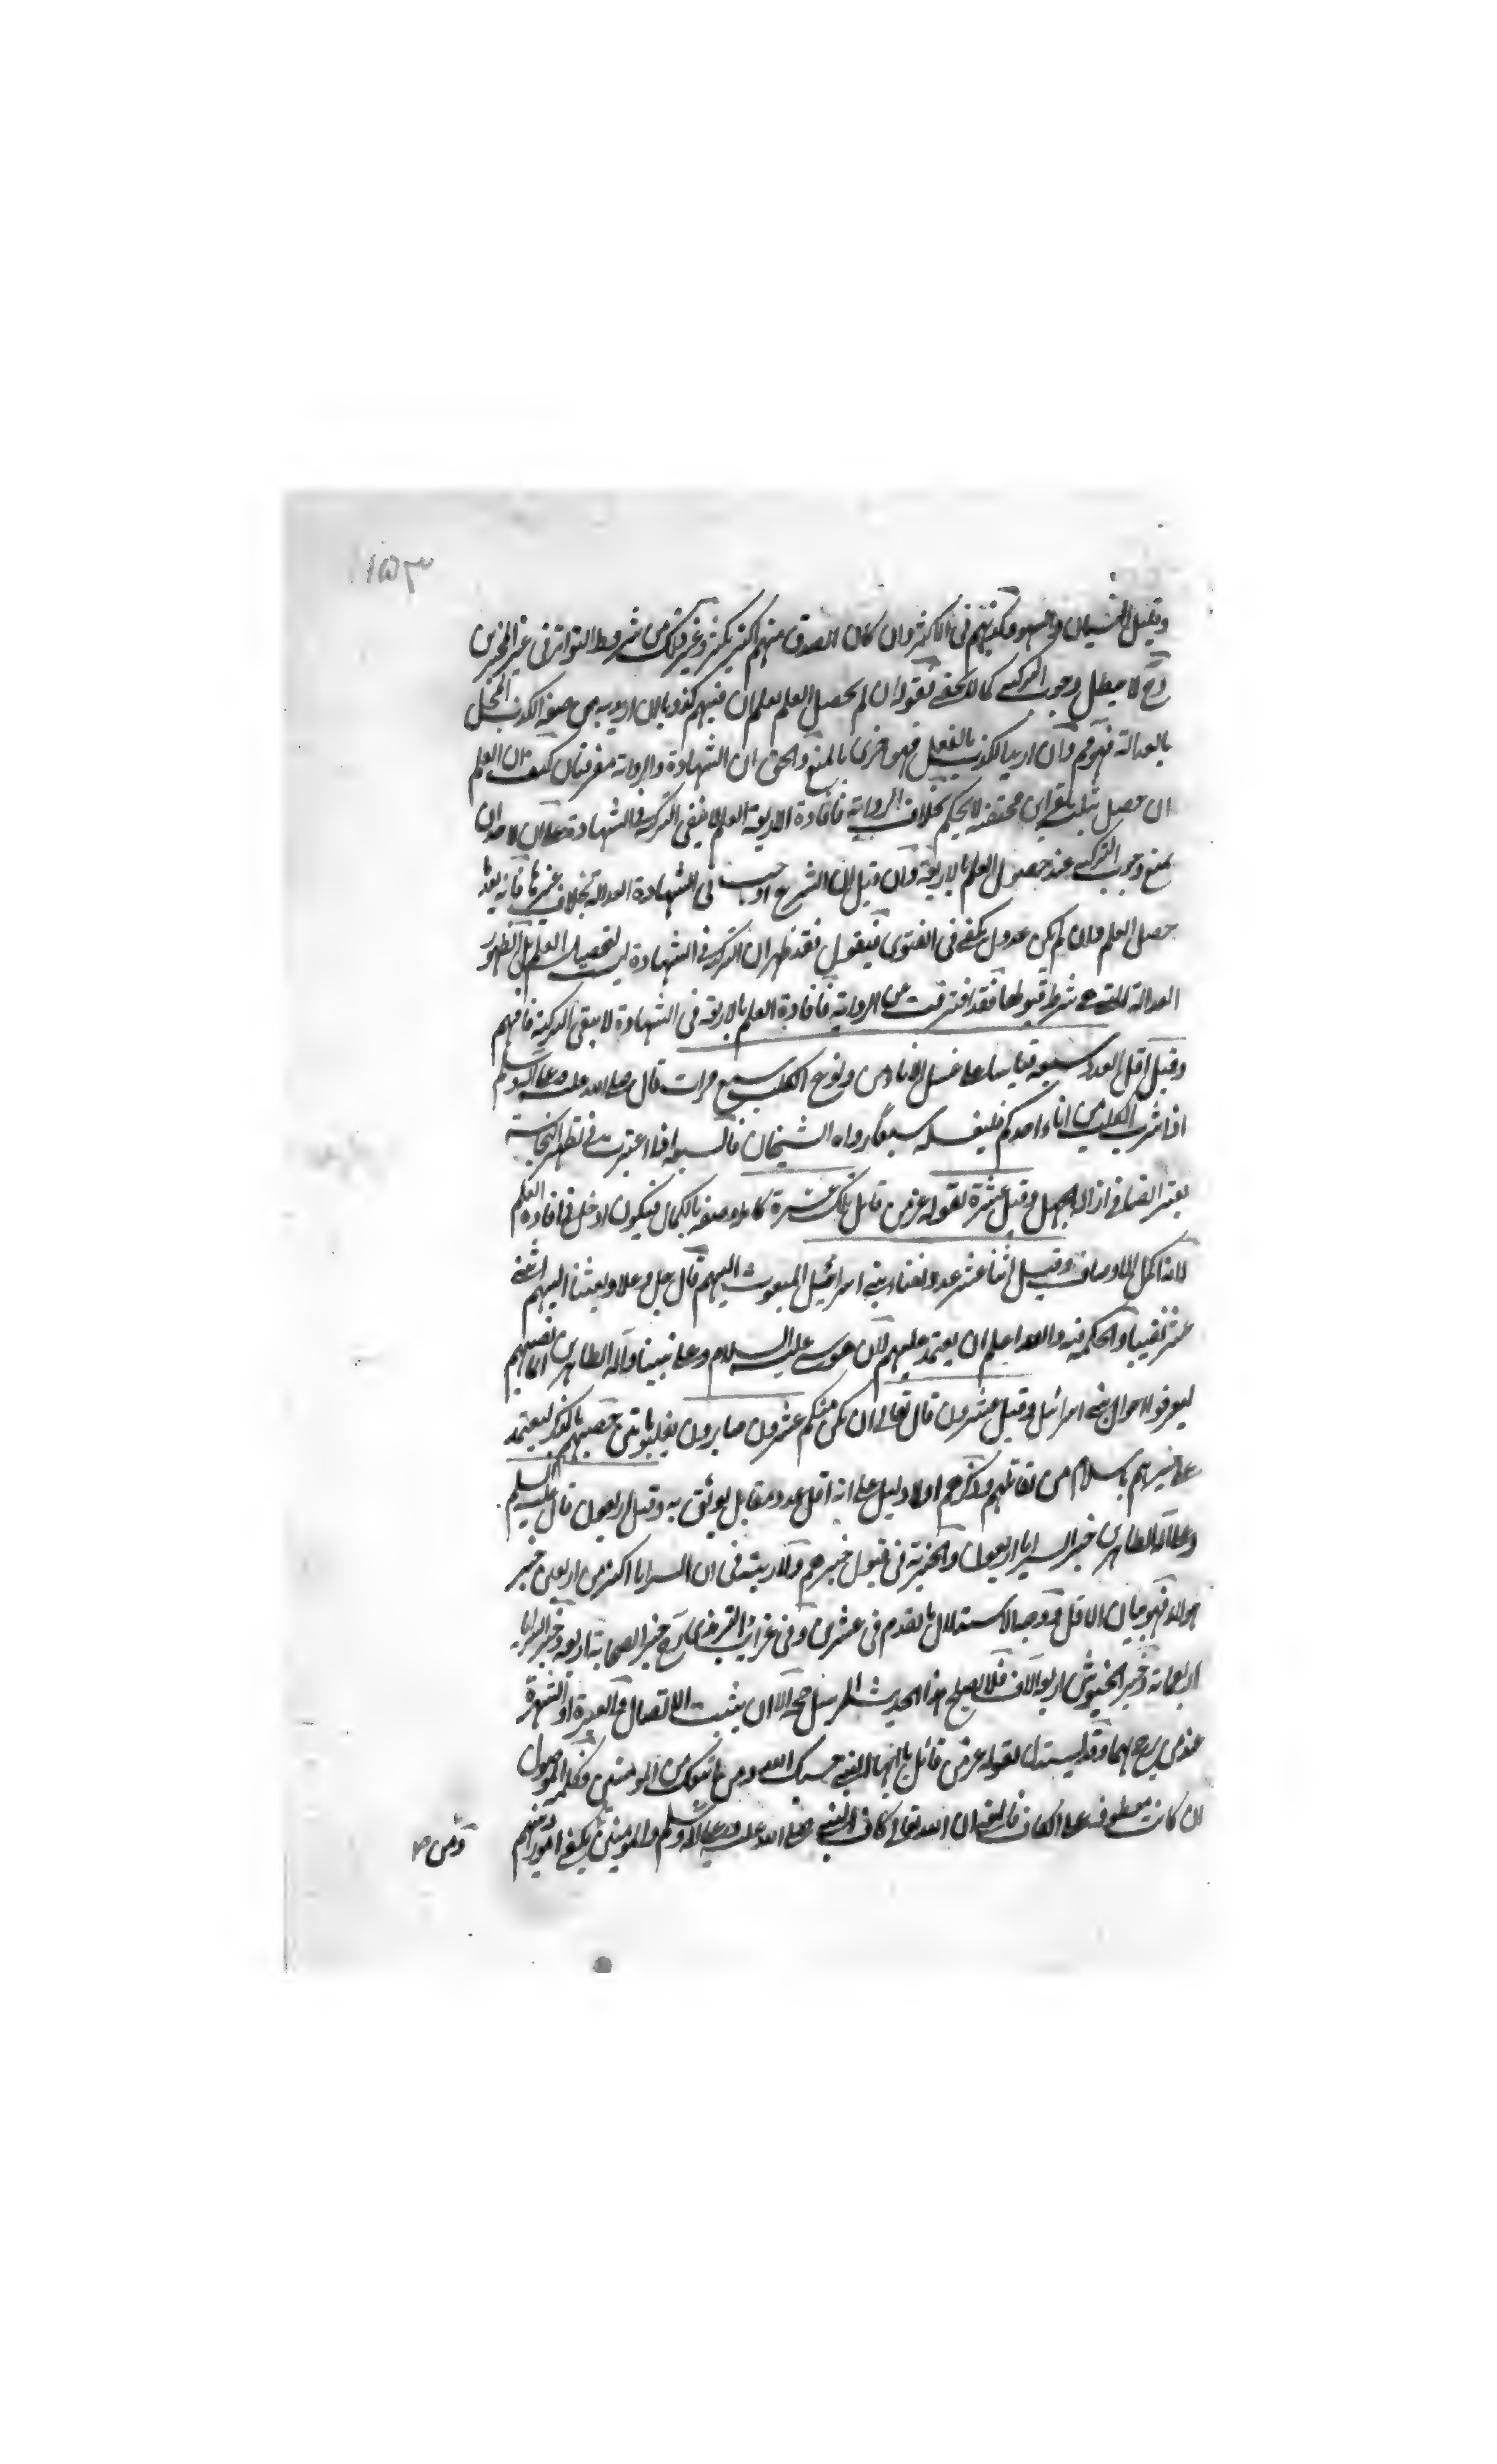 ١٥٣
وقليل النسيان والسهو فكذبهم في الاكثر وان كان الصدق منهم اكثر بكثر وغير ذلك من شروط التواتر في غير المخبرين
وح لا يبطل وجوب التزكية كما لا يخفى بقوله ان لم يحصل العلم يعلم ان فيهم كذوبا لان اريد به من صفة الكذب المخل
بالعدالة فهو مم وان اريد بالكذب بالفعل فهو حرى بالمنع والحق ان الشهادة والرواية مفترقتان كيف ان العلم
ان حصل بثلثة بقراين محتفة لا يحكم بخلاف الرواية فافادة الاربعة العلم لا ينفي التزكية في الشهادة على ان لاحد ان
يمنع وجوب التزكية عند حصول العلم بالاربعة وان قيل ان الشرع اوجب في الشهادة العدالة بخلاف غيرها فانه بعد ما
حصل العلم وان لم يكن عدول يكفي في الفتوى فيقول فقد ظهر ان التزكية في الشهادة ليست لتحصيل العلم بل لظهور
العدالة التي هي شرط قبولها فقد افترقت عن الرواية فافادة العلم بالاربعة في الشهادة لا ينفي التزكية فافهم
وقيل اقل العدد سبعة قياسا على غسل الاناء من ولوغ الكلب سبع مرات قال صلى الله عليه وعلى آله وسلم
اذا شرب الكلب من اناء احدكم فليغسله سبعا رواه الشيخان فالسبعة اذا اعتبرت في تطهير النجاسة
يعتبر ايضا في ازالة الجهل وقيل عشرة لقوله عز من قائل تلك عشرة كاملة وصفه بالكمال فيكون ادخل في افادة العلم
لانه اكمل الاوصاف وقيل اثنا عشر عدد نقباء بني اسرائيل المبعوث اليهم قال جل وعلا وبعثنا اليهم اثني
عشر نقيبا والحكمة فيه والله اعلم ان يعتمد عليهم لان موسى عليه السلام وعلى نبينا وآله الطاهرين انما نصبهم
ليعرفوا احوال بني اسرائيل وقيل عشرون قال تعالى ان يكن منكم عشرون صابرون يغلبوا مأتين خصهم بالذكر ليعتمد
على خبرهم باسلام من يقاتلهم وذكرهم اولا دليل على انه اقل عدد مقابل يوثق به وقيل اربعون قال عليه السلام
وعلى آله الطاهرين خير السرايا اربعون والخيرية في قبول خبرهم ولا ريب في ان السرايا اكثر من اربعين خير
هؤلاء فهو بيان الاقل ووجه الاستدلال ما تقدم في عشرين وفي غرائب الترمذي رح خير الصحابة اربعة وخير السرايا
اربعمائة وخير الجيوش اربعة آلاف فلا يصلح هذا الحديث المرسل حجة الا ان يثبت الاتصال والعبرة او الشهرة
عند من يرى بهما وقد يستدل بقوله عز من قائل يا ايها النبي حسبك الله ومن اتبعك من المومنين وكلمة الموصول
ان كانت معطوفة على الكاف فالمعنى ان الله تعالى كاف للنبي صلى الله عليه وعلى آله وسلم والمومنين يكفي امورهم
ومن